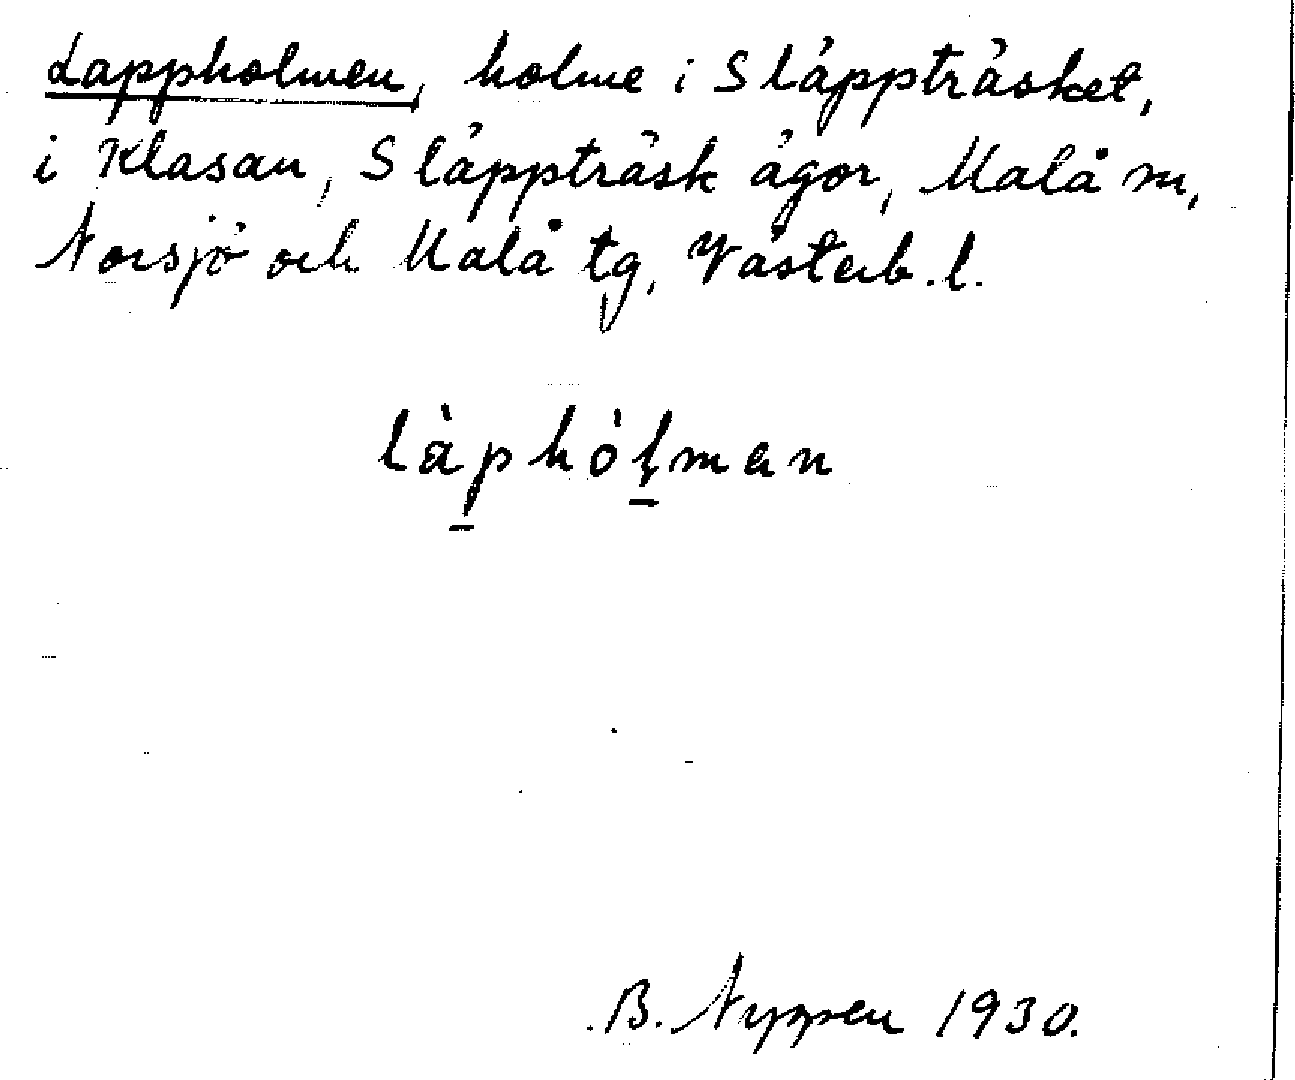 Lappholmen, holme i Släppträsket,
i Klasan, Släppträsk ägor, Malå sn,
Norsjö och Malå tg, Västerb. l.
làp̠hòl̠man
B. Nyppen 1930.